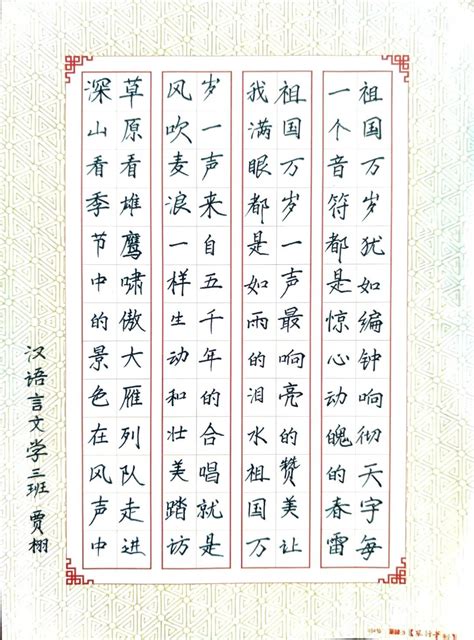 祖国万岁犹如编钟响彻天宇每
一个音符都是惊心动魄的春雷
祖国万岁一声最响亮的赞美让
我满眼都是如雨的泪水祖国万
岁一声来自五千年的合唱就是
风吹麦浪一样生动和壮美踏访
草原看雄鹰啸傲大雁列队走进
深山看季节中的景色在风声中
汉语言文学三班 贾栩